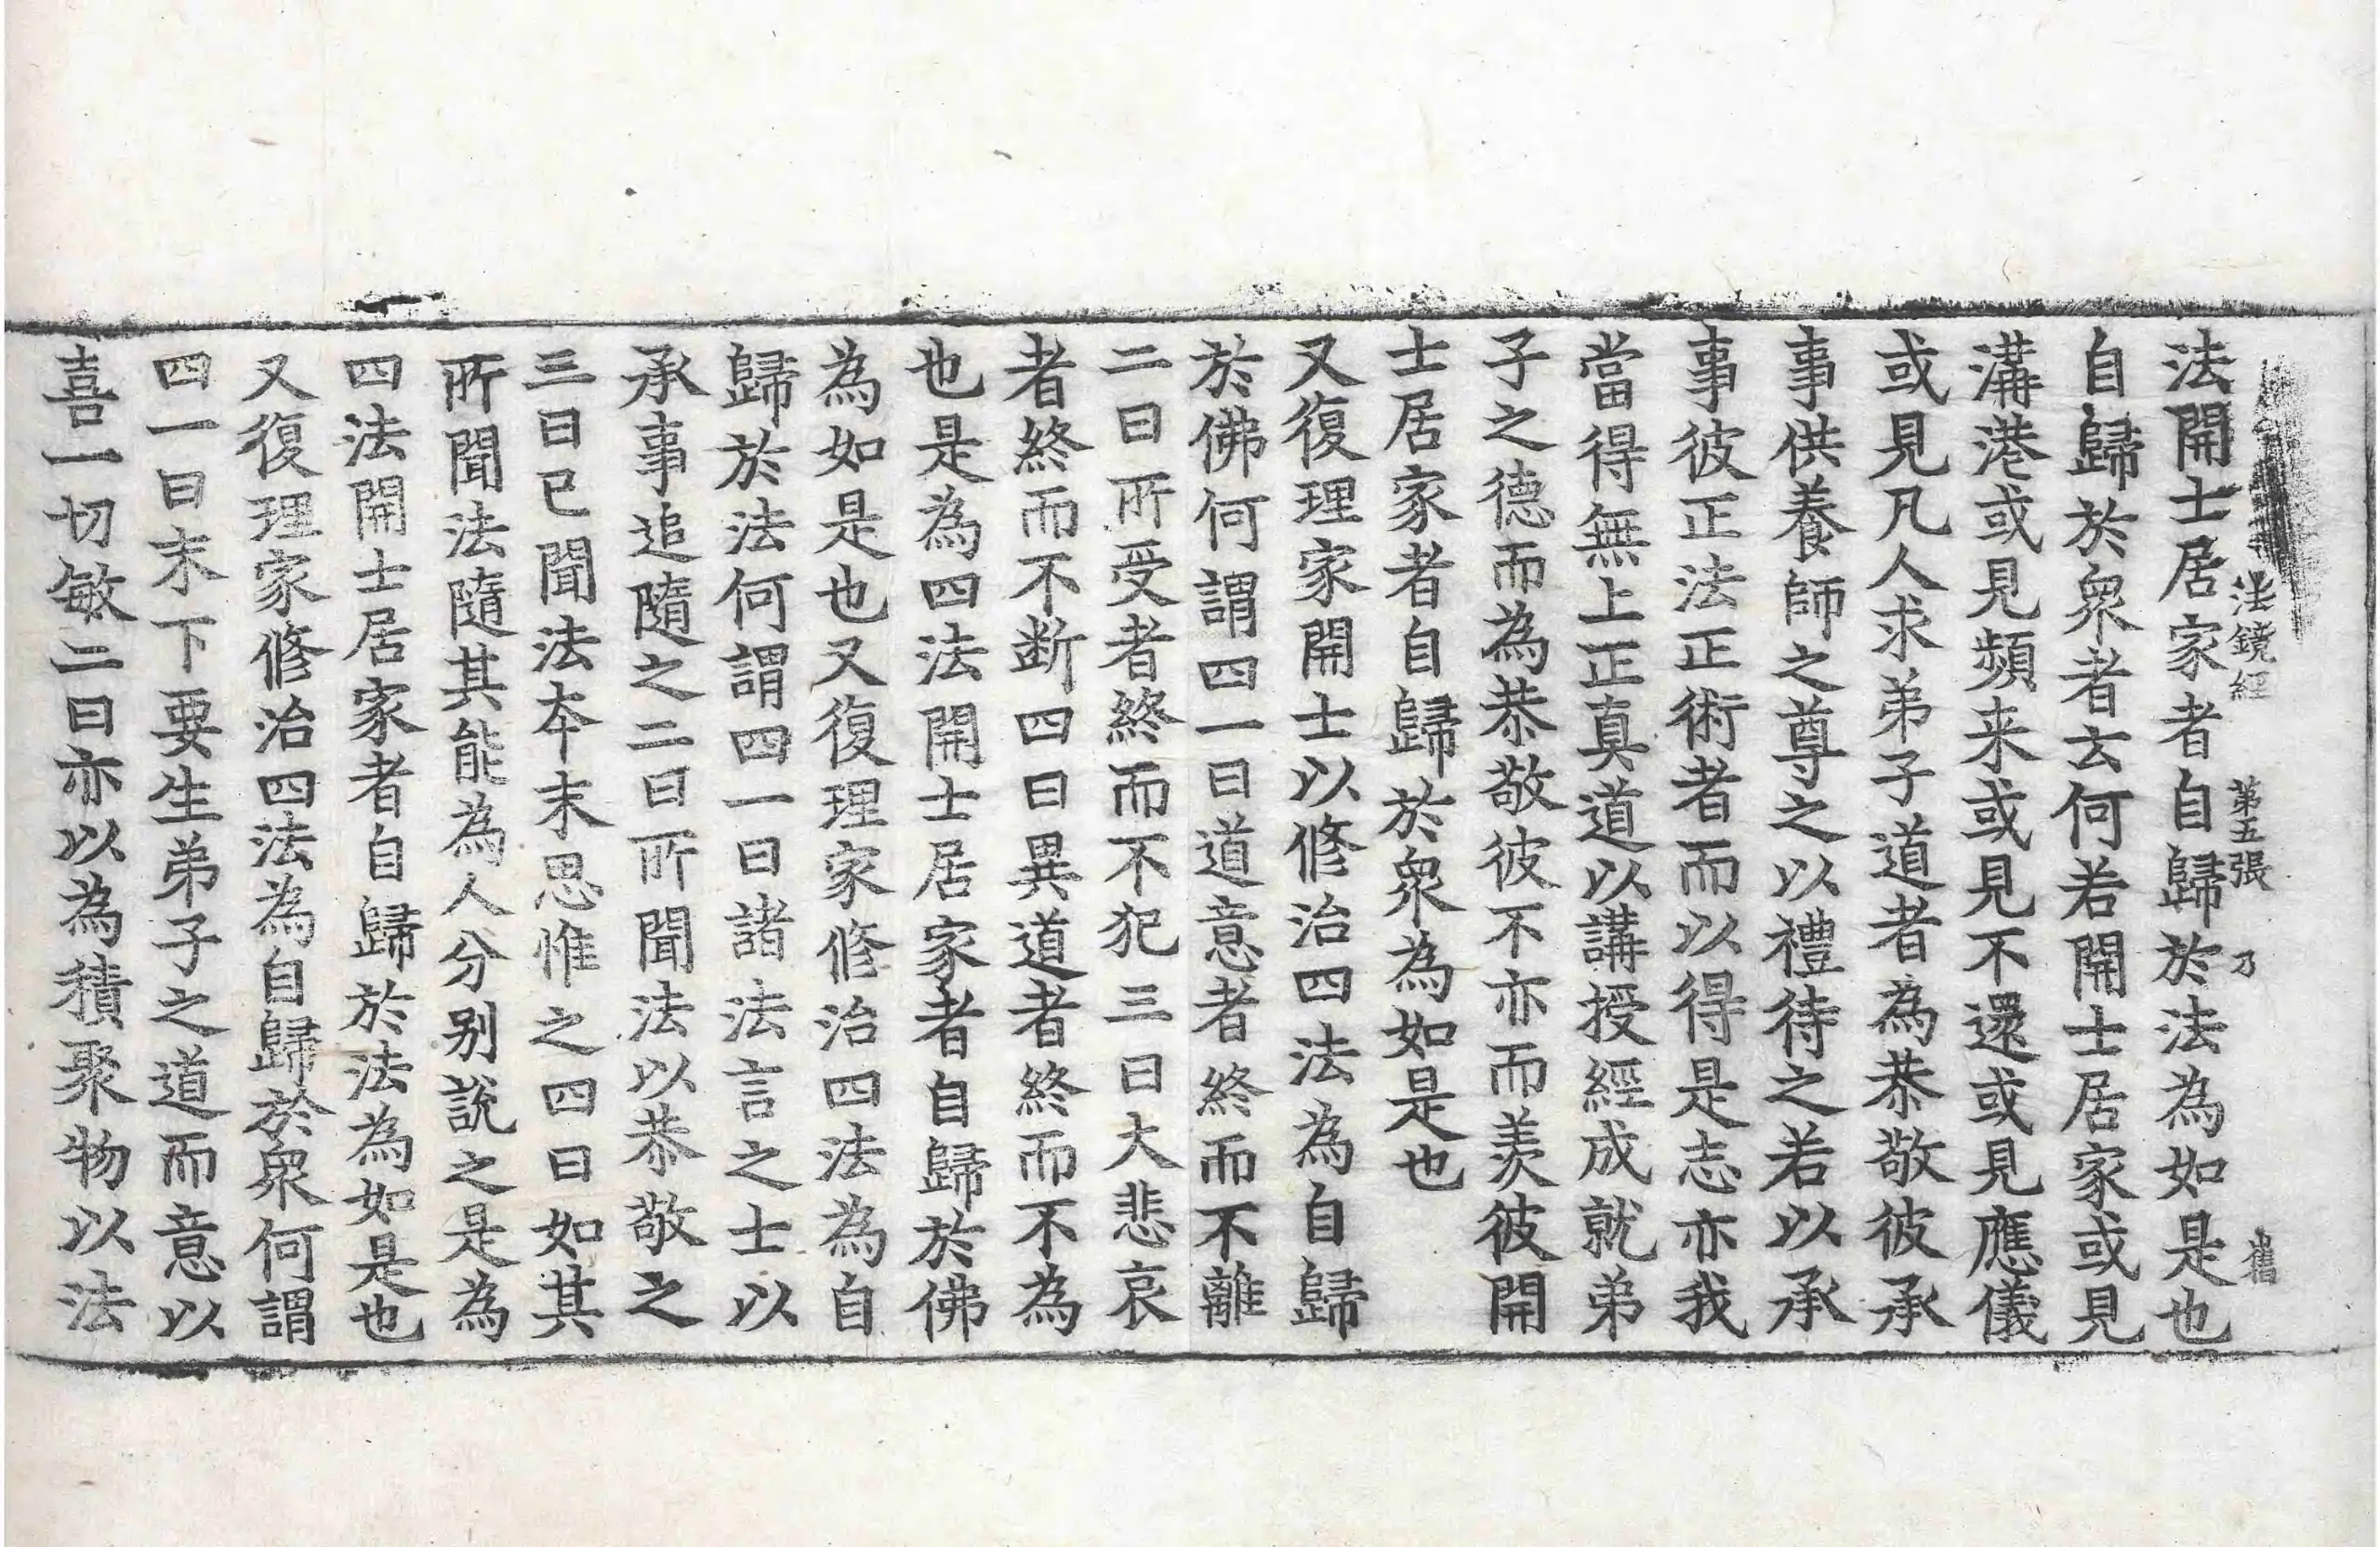 法鏡經 第五張 乃
法開士居家者自歸於法為如是也
自歸於衆者云何若開士居家或見
溝港或見頻来或見不還或見應儀
或見凡人求弟子道者為恭敬彼承
事供養師之尊之以禮待之若以承
事彼正法正術者而以得是志亦我
當得無上正真道以講授經成就弟
子之德而為恭敬彼不亦而羨彼開
士居家者自歸於衆為如是也
又復理家開士以修治四法為自歸
於佛何謂四一曰道意者終而不離
二曰所受者終而不犯三曰大悲哀
者終而不断四曰異道者終而不為
也是為四法開士居家者自歸於佛
為如是也又復理家修治四法為自
歸於法何謂四一曰諸法言之士以
承事追隨之二曰所聞法以恭敬之
三曰已聞法本末思惟之四曰如其
所聞法隨其能為人分别說之是為
四法開士居家者自歸於法為如是也
又復理家修治四法為自歸於衆何謂
四一曰末下要生弟子之道而意以
喜一切敏二曰亦以為積聚物以法